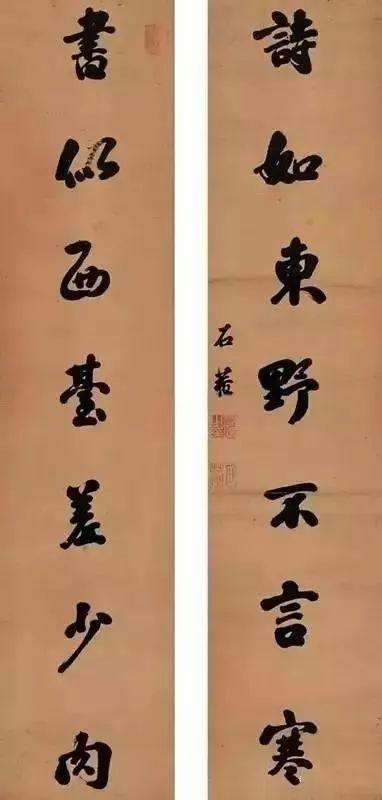 詩如東野不言寒
石菴
書似西臺差少肉